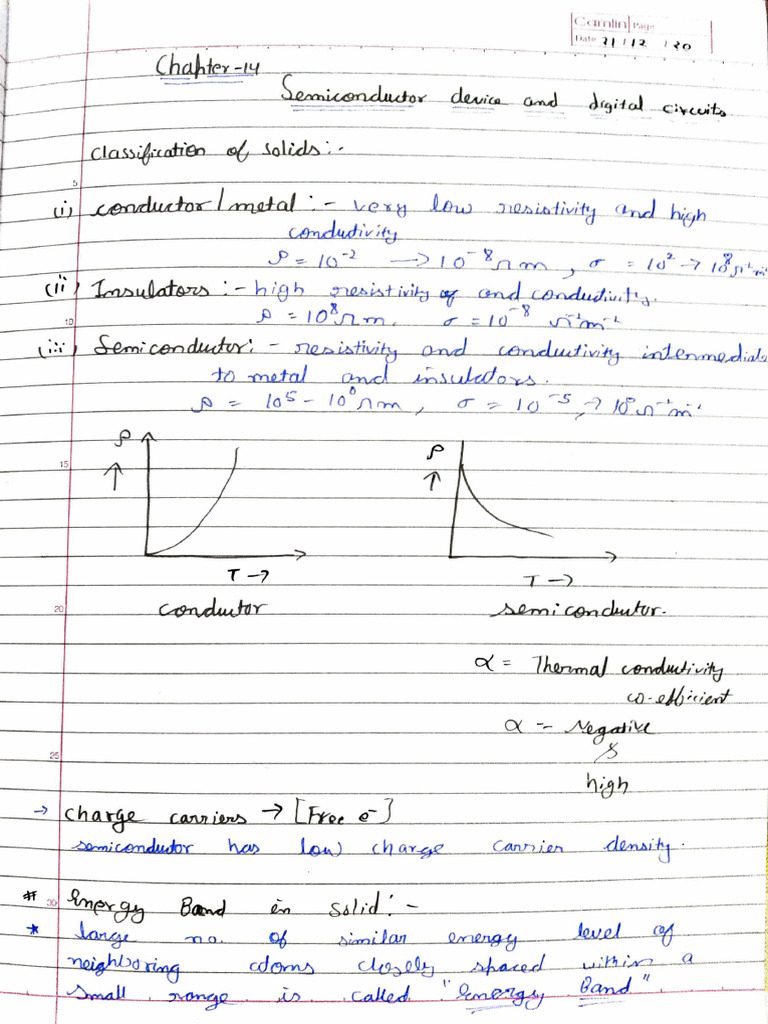 Camlin Page
Date 21/12/20
Chapter-14
Semiconductor device and digital circuits
classification of solids:-
5
(i) conductor/metal :- very low resistivity and high
conductivity
ρ = 10⁻² → 10⁻⁸ Ωm, σ = 10² → 10⁸ Ω⁻¹m⁻¹
(ii) Insulators :- high resistivity of and conductivity.
10
ρ = 10⁸ Ωm. σ = 10⁻⁸ Ω⁻¹m⁻¹
(iii) Semiconductor:- resistivity and conductivity intermediate
to metal and insulators.
ρ = 10⁵ - 10⁰ Ωm, σ = 10⁻⁵, → 10⁰ Ω⁻¹m⁻¹
ρ ρ
15
↑ ↑
T → T →
20
conductor semiconductor.
α = Thermal conductivity
co-efficient
α = Negative
&
25
high
→ charge carriers → [Free e⁻]
semiconductor has low charge carrier density.
# 30 Energy Band in solid:-
* large no. of similar energy level of
neighboring atoms closely spaced within a
small range is called "Energy Band".